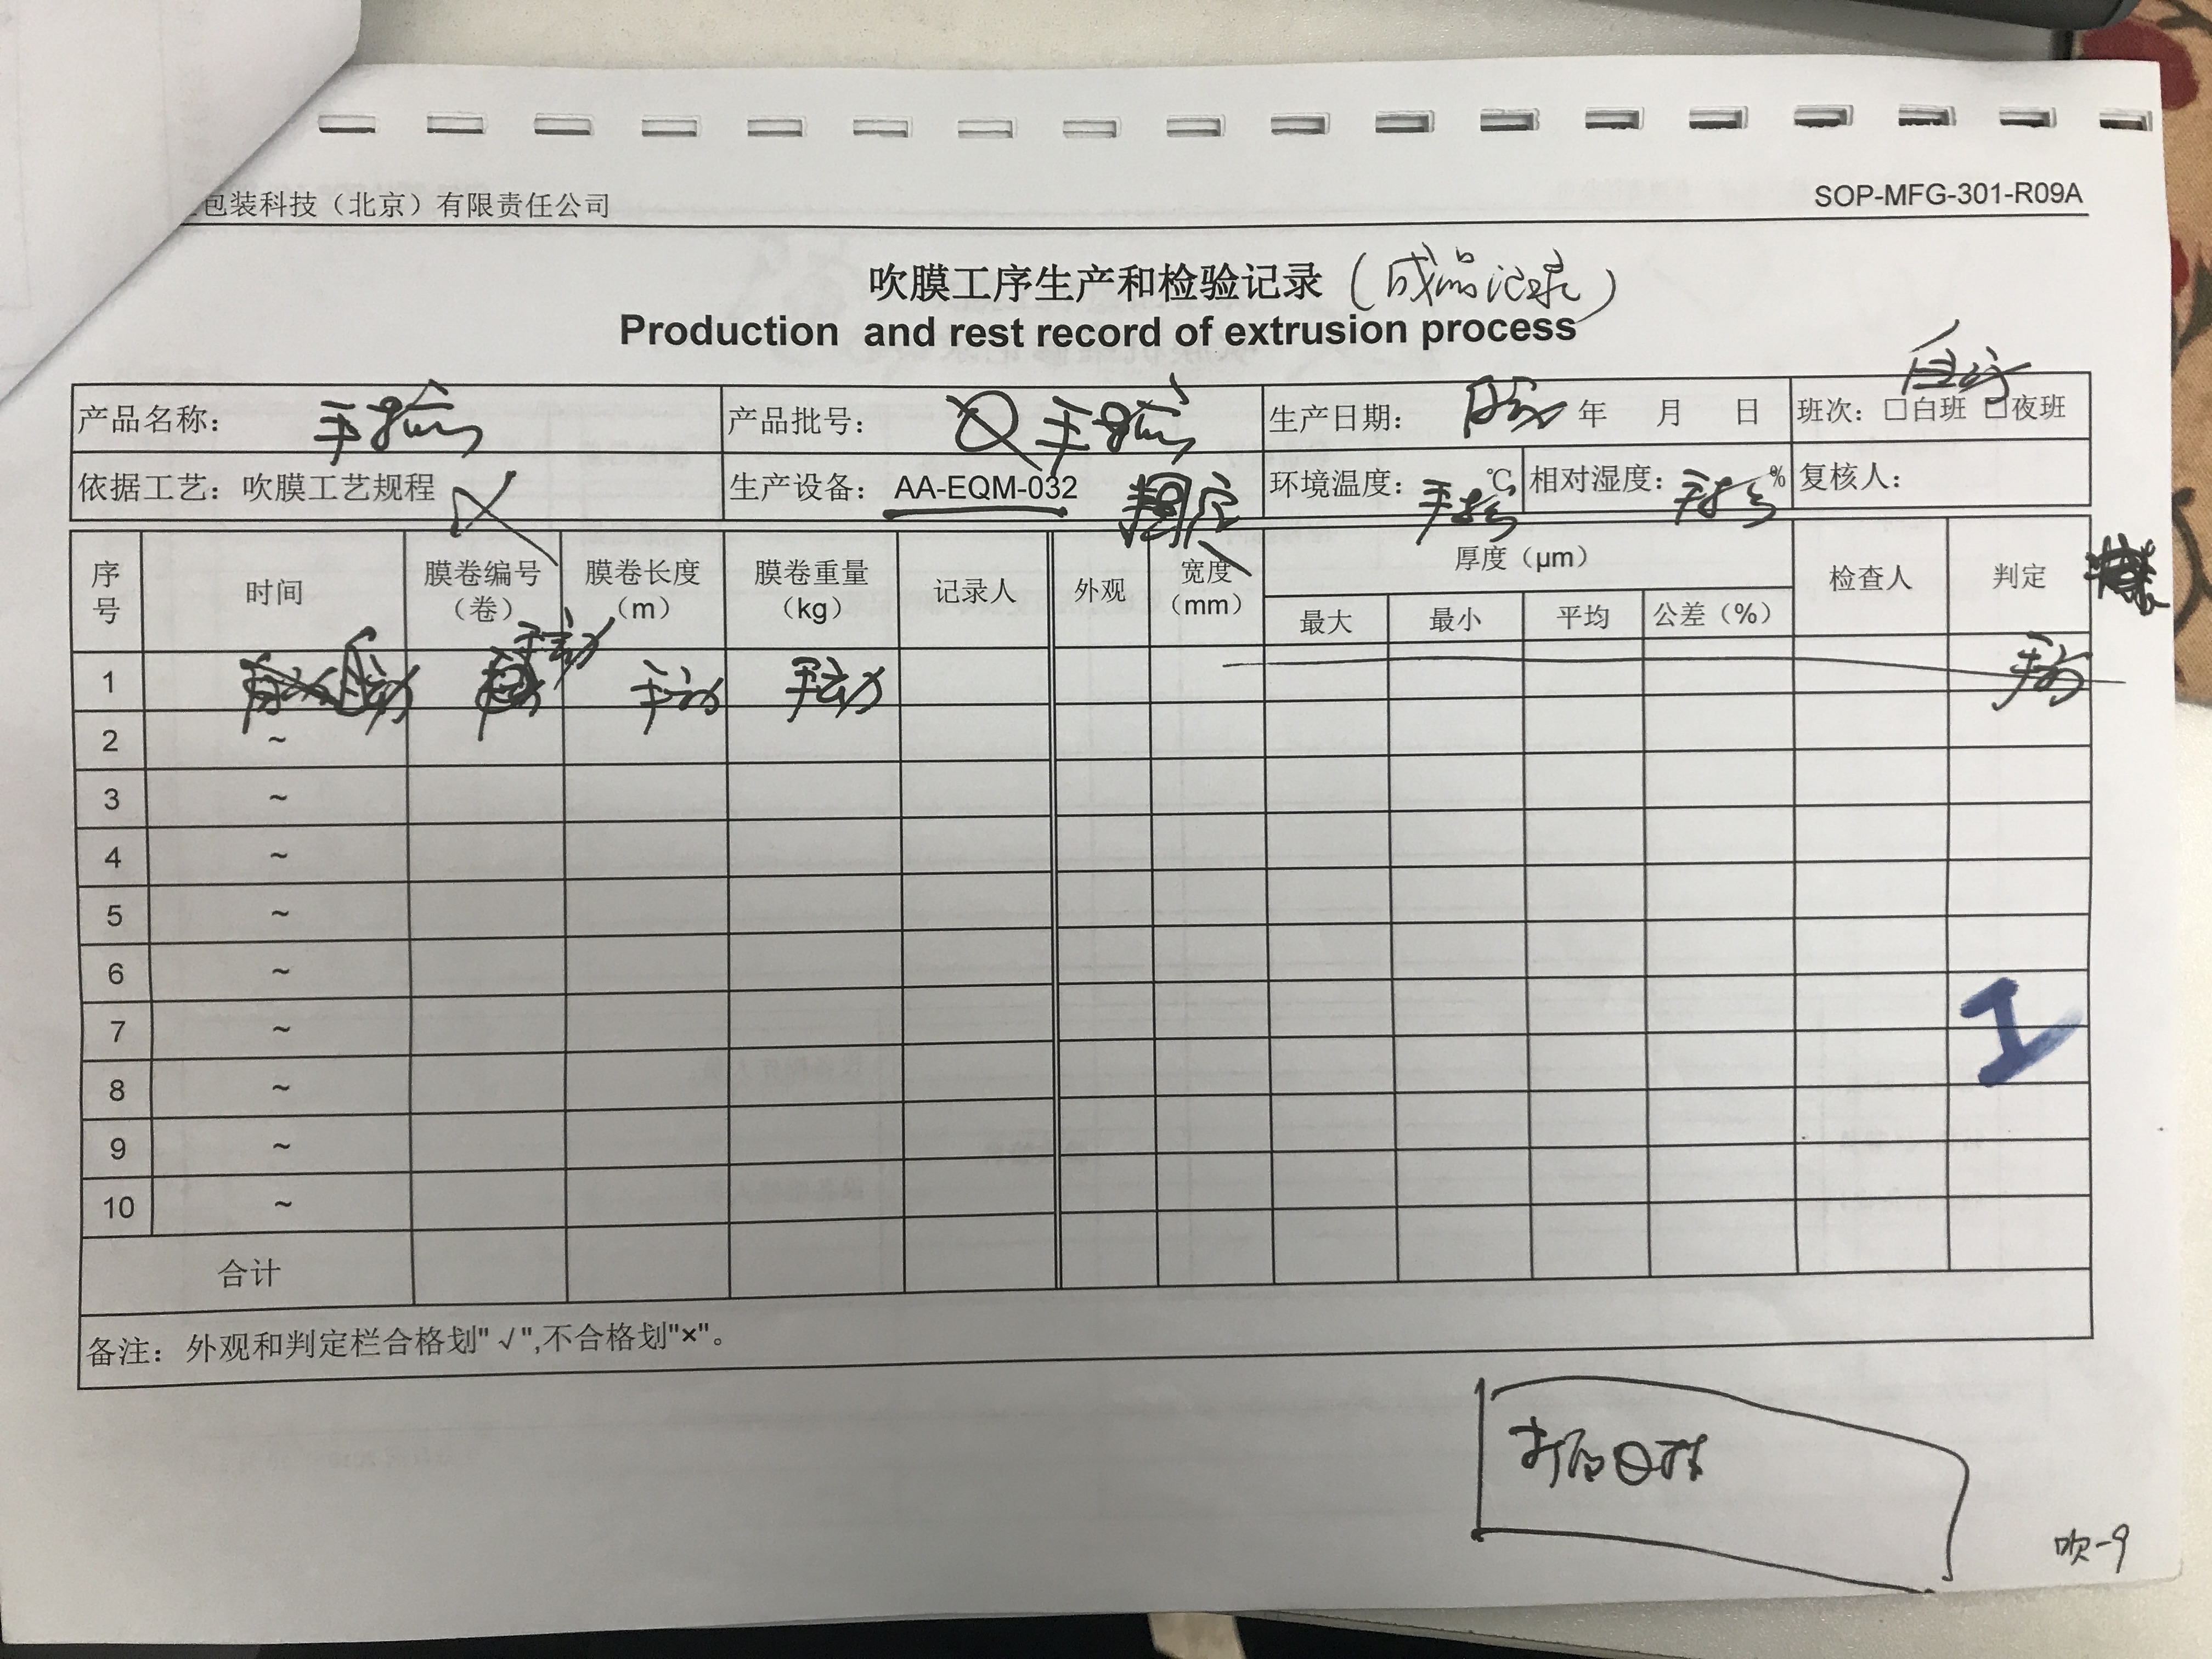 包装科技（北京）有限责任公司 SOP-MFG-301-R09A
吹膜工序生产和检验记录（成品记录）
Production and rest record of extrusion process
产品名称： 产品批号： 生产日期： 年 月 日 班次：□白班 □夜班
依据工艺：吹膜工艺规程 生产设备：AA-EQM-032 固定 环境温度： ℃ 相对湿度： % 复核人：
序号 时间 膜卷编号（卷） 膜卷长度（m） 膜卷重量（kg） 记录人 外观 宽度（mm） 厚度（μm） 检查人 判定
最大 最小 平均 公差（%）
1 手动 手动 手动 手动
2 ~
3 ~
4 ~
5 ~
6 ~
7 ~
8 ~
9 ~
10 ~
合计
备注：外观和判定栏合格划"√",不合格划"×"。
吹-9